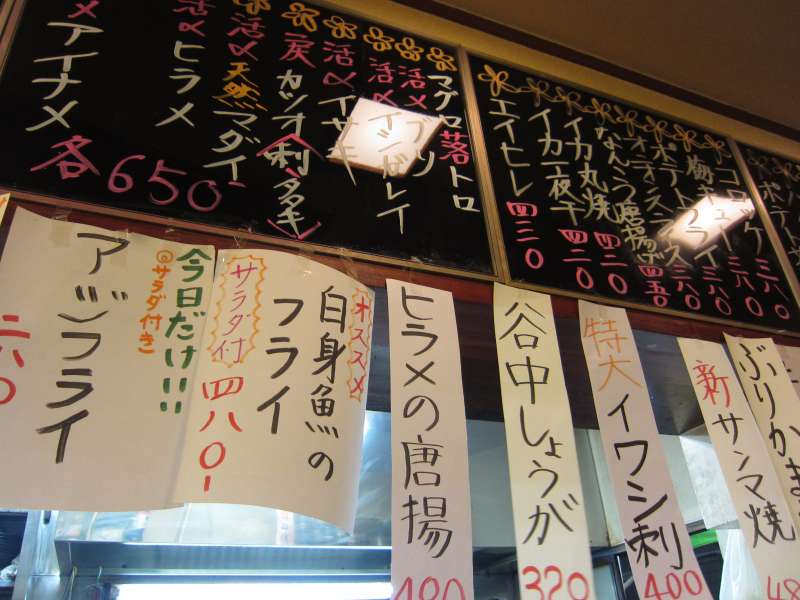 マグロ落トロ
活〆ブリ
活〆イシガレイ
活〆イサキ
戻カツオ(刺・タタキ)
活〆天然マダイ
活〆ヒラメ
〆アイナメ
各650
コロッケ 三八〇
梅キュー 三八〇
ポテトフライ 三八〇
オニオンスライス 三八〇
なんこつ唐揚げ 四五〇
イカ丸焼 四二〇
イカ一夜干 四二〇
エイヒレ 四三〇
ポテ
ぶりかま
新サンマ焼
48
特大イワシ刺
400
谷中しょうが
320
ヒラメの唐揚
480
オススメ
白身魚の
フライ
サラダ付
四八〇-
今日だけ!!
◎サラダ付き
アジフライ
二八〇